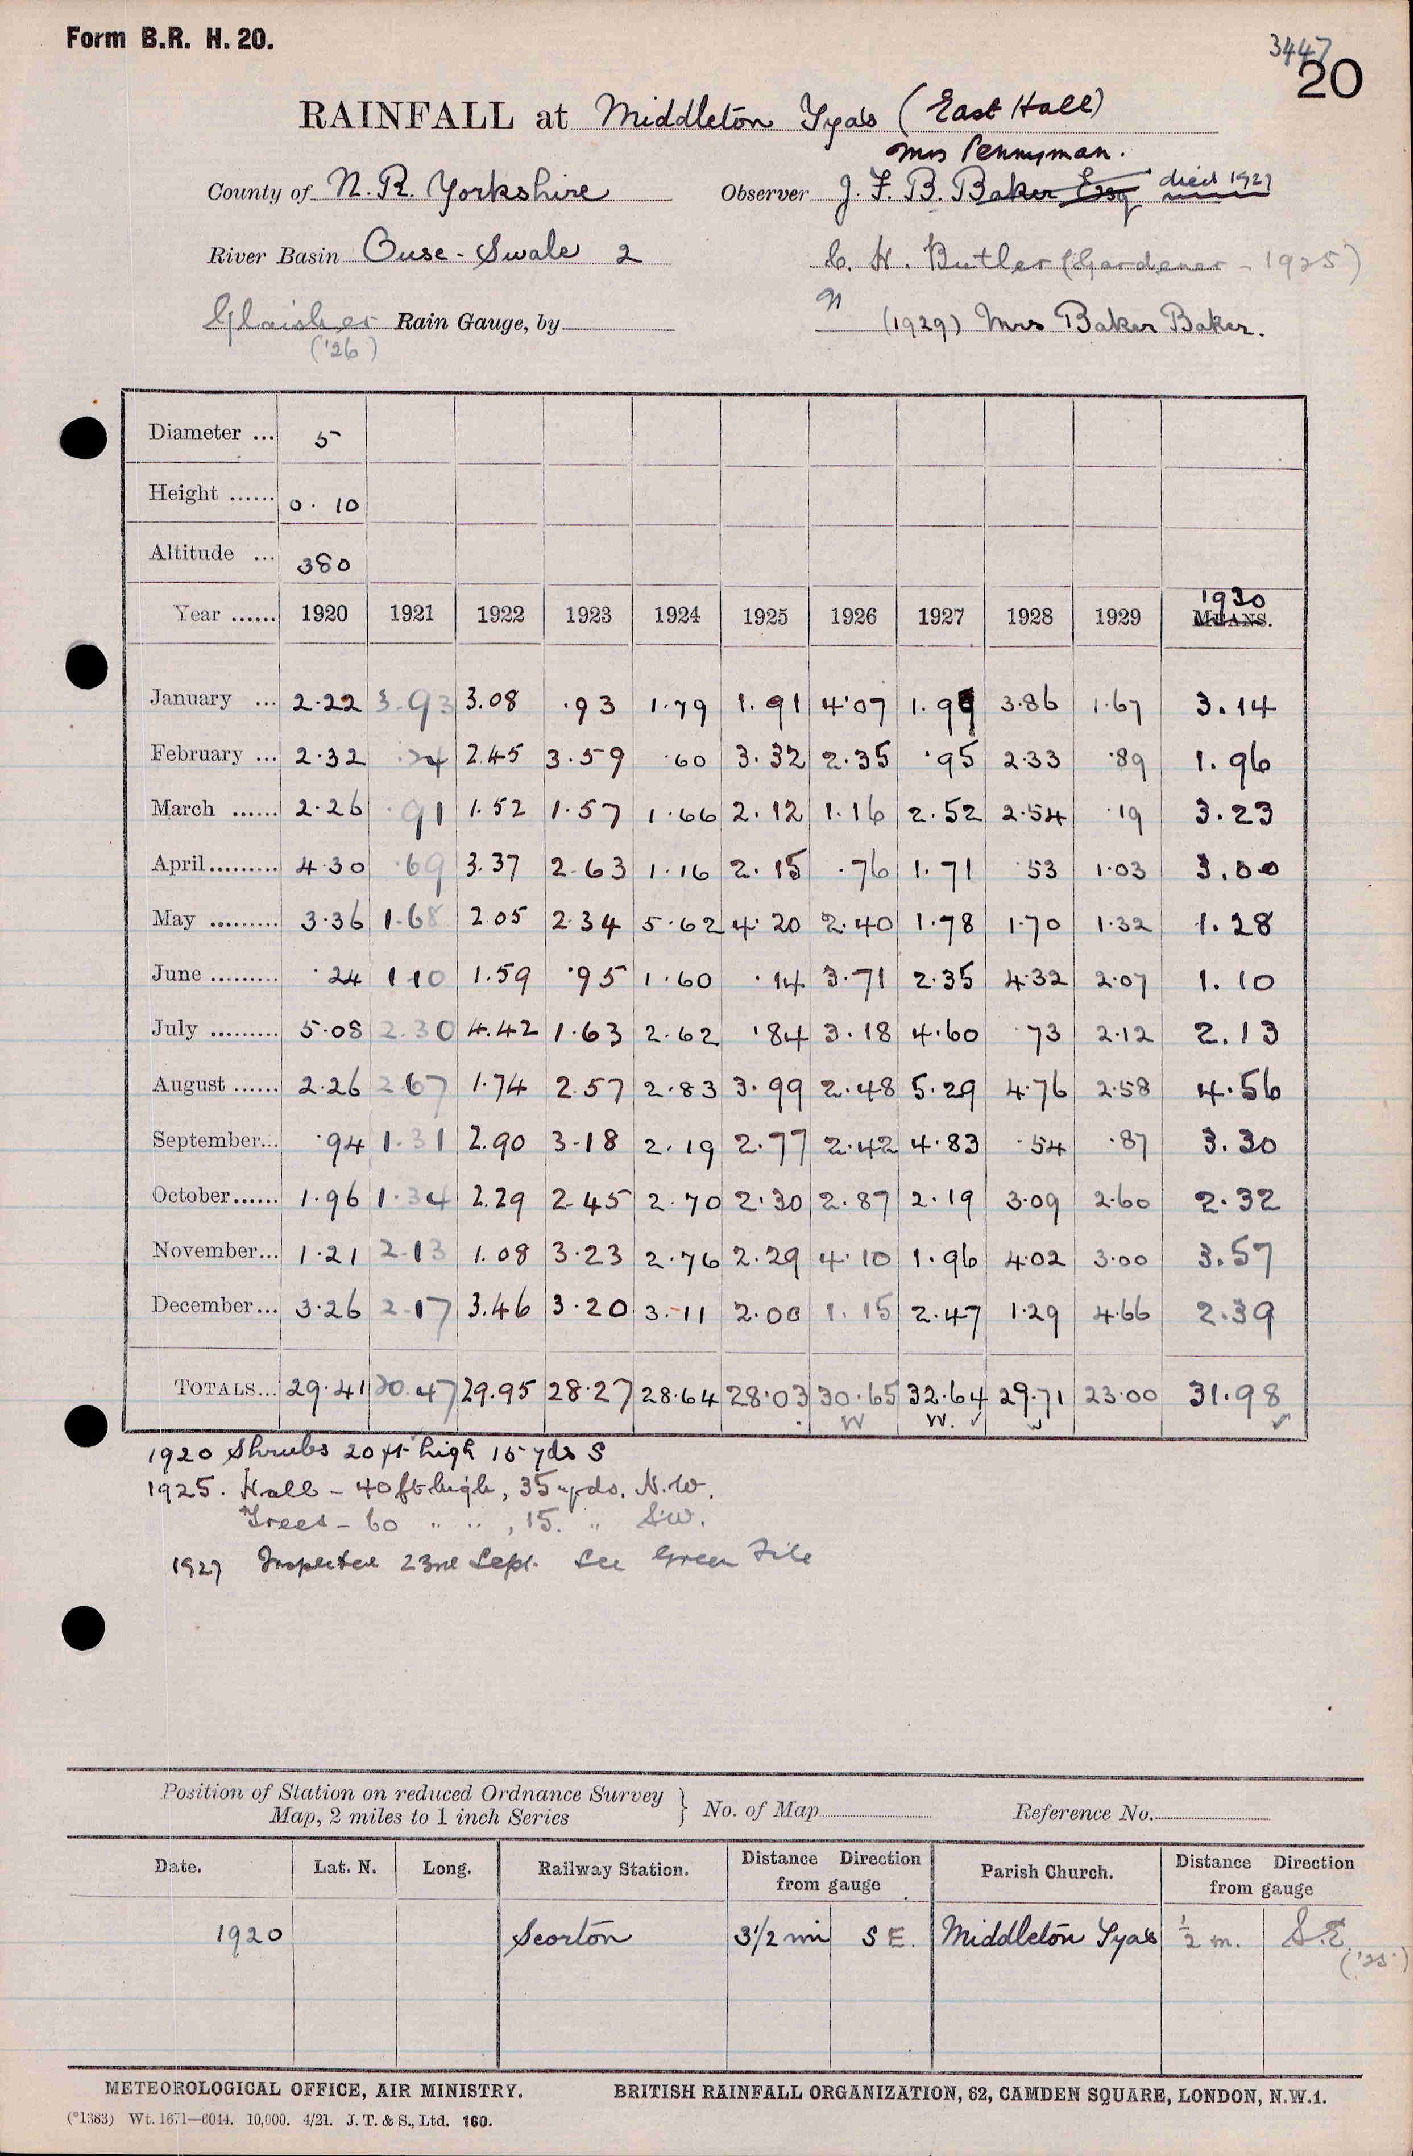 Form B.R. H. 20.
3447
20
RAINFALL at Middleton Tyas (East Hall)
Mrs Pennyman.
County of N. R. Yorkshire Observer J. F. B. Baker Esq died 1927
River Basin Ouse - Swale 2 C. H. Butler (Gardener - 1925)
Glaisher Rain Gauge, by (1929) Mrs Baker Baker.
('26)
Diameter ... 5
Height ...... 0. 10
Altitude ... 380
Year ...... 1920 1921 1922 1923 1924 1925 1926 1927 1928 1929 1930 MEANS.
January ... 2.22 3.93 3.08 .93 1.79 1.91 4.07 1.99 3.86 1.67 3.14
February ... 2.32 .24 2.45 3.59 .60 3.32 2.35 .95 2.33 .89 1.96
March ...... 2.26 .91 1.52 1.57 1.66 2.12 1.16 2.52 2.54 .19 3.23
April......... 4.30 .69 3.37 2.63 1.16 2.15 .76 1.71 .53 1.03 3.00
May ......... 3.36 1.68 2.05 2.34 5.62 4.20 2.40 1.78 1.70 1.32 1.28
June ......... .24 1.10 1.59 .95 1.60 .14 3.71 2.35 4.32 2.07 1.10
July ......... 5.08 2.30 4.42 1.63 2.62 .84 3.18 4.60 .73 2.12 2.13
August ...... 2.26 2.67 1.74 2.57 2.83 3.99 2.48 5.29 4.76 2.58 4.56
September... .94 1.31 2.90 3.18 2.19 2.77 2.42 4.83 .54 .87 3.30
October...... 1.96 1.34 2.29 2.45 2.70 2.30 2.87 2.19 3.09 2.60 2.32
November... 1.21 2.13 1.08 3.23 2.76 2.29 4.10 1.96 4.02 3.00 3.57
December... 3.26 2.17 3.46 3.20 3.11 2.00 1.15 2.47 1.29 4.66 2.39
TOTALS... 29.41 20.47 29.95 28.27 28.64 28.03 30.65 32.64 29.71 23.00 31.98
W W. ✓ W ✓
1920 Shrubs 20 ft high 15 yds S
1925. Hall - 40 ft high, 35 yds. N.W.
Trees - 60 " " , 15. " S.W.
1927 Inspected 23rd Sept. See Green File
Position of Station on reduced Ordnance Survey
Map, 2 miles to 1 inch Series } No. of Map Reference No.
Date. Lat. N. Long. Railway Station. Distance Direction from gauge Parish Church. Distance Direction from gauge
1920 Scorton 3 1/2 mi S E. Middleton Tyas 1/2 m. S.E.
('25)
METEOROLOGICAL OFFICE, AIR MINISTRY. BRITISH RAINFALL ORGANIZATION, 62, CAMDEN SQUARE, LONDON, N.W.1.
(*1383) Wt. 1671—6044. 10,000. 4/21. J. T. & S., Ltd. 160.